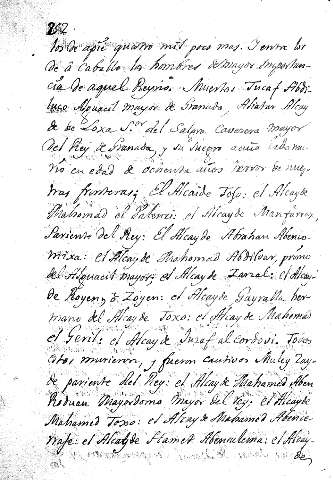 262
los de apie quatro mil poco mas. Y entre los
de à Caballo los hombres de mayor Importan-
cia de aquel Reyno. Muertos Iucaf Abdi-
Alguacil mayor de Granada, Abrahan Alcay
de de Loxa S.or del Salara Cavecera mayor
del Rey de Granada, y su suegro
en edad de ochenta años terror de nues-
tras fronteras; El Alcaide Toxo: el Alcayde
Mahomad el el Alcayde
Pariente del Rey: El Alcayde Abrahan Abenco-
mixa: el Alcayde Mahomad Abdilbar, primo
del Alguacil mayor; el Alcayde Zarzal: el Alcay
de Royen, ò Zoyen: el Alcayde Gayralla her-
mano del Alcayde Toxo: el Alcayde Mahomad
el Geril: el Alcayde Juzaf al cordovi. Todos
estos murieron, y fueron cautivos Muley Zay-
de pariente del Rey: el Alcayde Mahamed Aben
Reduan Mayordomo Mayor del Rey: el Alcayde
Mahamed Toxo: el Alcayde Mahamed Abence-
rrafe: el Alcayde Hamet Abenculema: el Alcay-
de